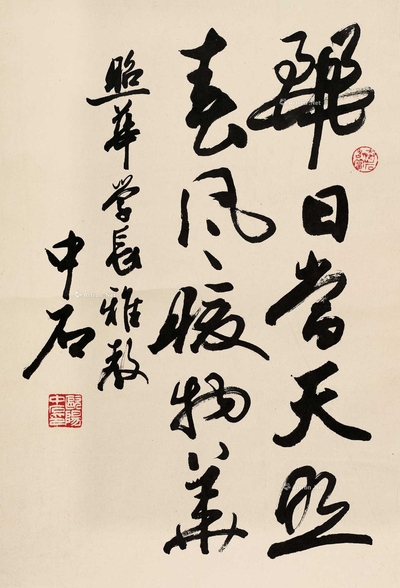 麗日當天照
春風暖物華
照華学長雅教
中石